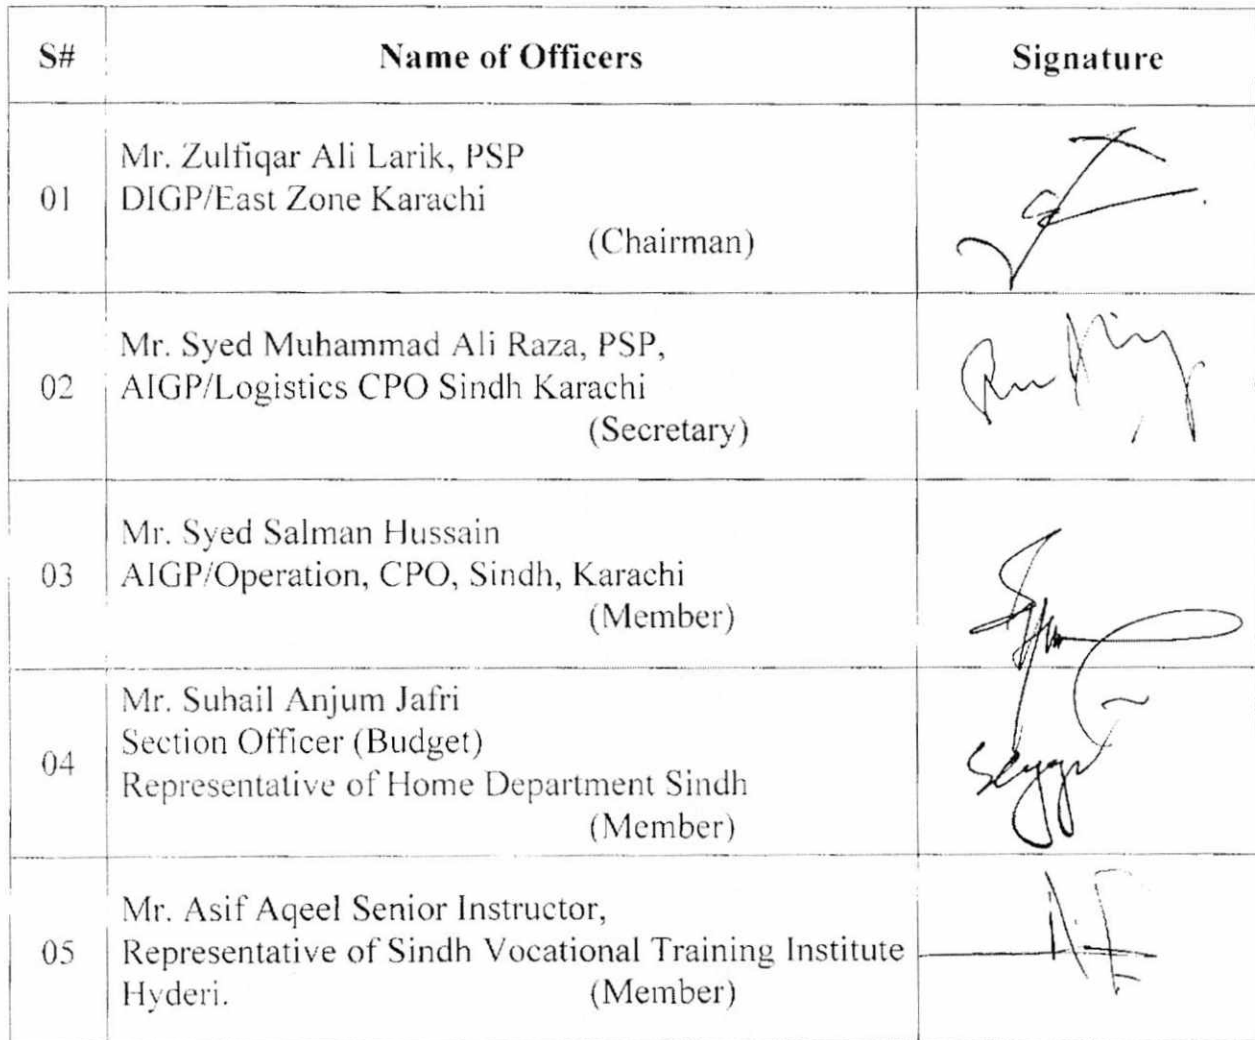 S# Name of Officers Signature
01
Mr. Zulfiqar Ali Larik, PSP
DIGP/East Zone Karachi
(Chairman)
02
Mr. Syed Muhammad Ali Raza, PSP,
AIGP/Logistics CPO Sindh Karachi
(Secretary)
03
Mr. Syed Salman Hussain
AIGP/Operation, CPO, Sindh, Karachi
(Member)
04
Mr. Suhail Anjum Jafri
Section Officer (Budget)
Representative of Home Department Sindh
(Member)
05
Mr. Asif Aqeel Senior Instructor,
Representative of Sindh Vocational Training Institute
Hyderi. (Member)